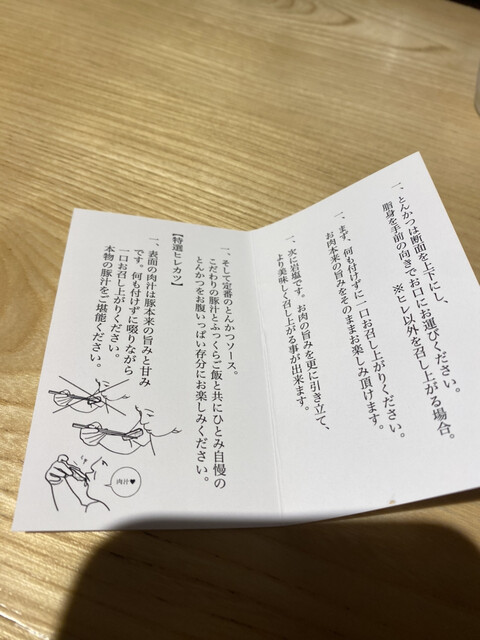 一、とんかつは断面を上下にし、
脂身を手前の向きでお口にお運びください。
※ヒレ以外を召し上がる場合。
一、まず、何も付けずに一口お召し上がりください。
お肉本来の旨みをそのままお楽しみ頂けます。
一、次に岩塩です。お肉の旨みを更に引き立て、
より美味しく召し上がる事が出来ます。
一、そして定番のとんかつソース。
こだわりの豚汁とふっくらご飯と共にひとみ自慢の
とんかつをお腹いっぱい存分にお楽しみください。
【特選ヒレカツ】
一、表面の肉汁は豚本来の旨みと甘み
です。何も付けずに啜りながら
一口お召し上がりください。
本物の豚汁をご堪能ください。
肉汁♥